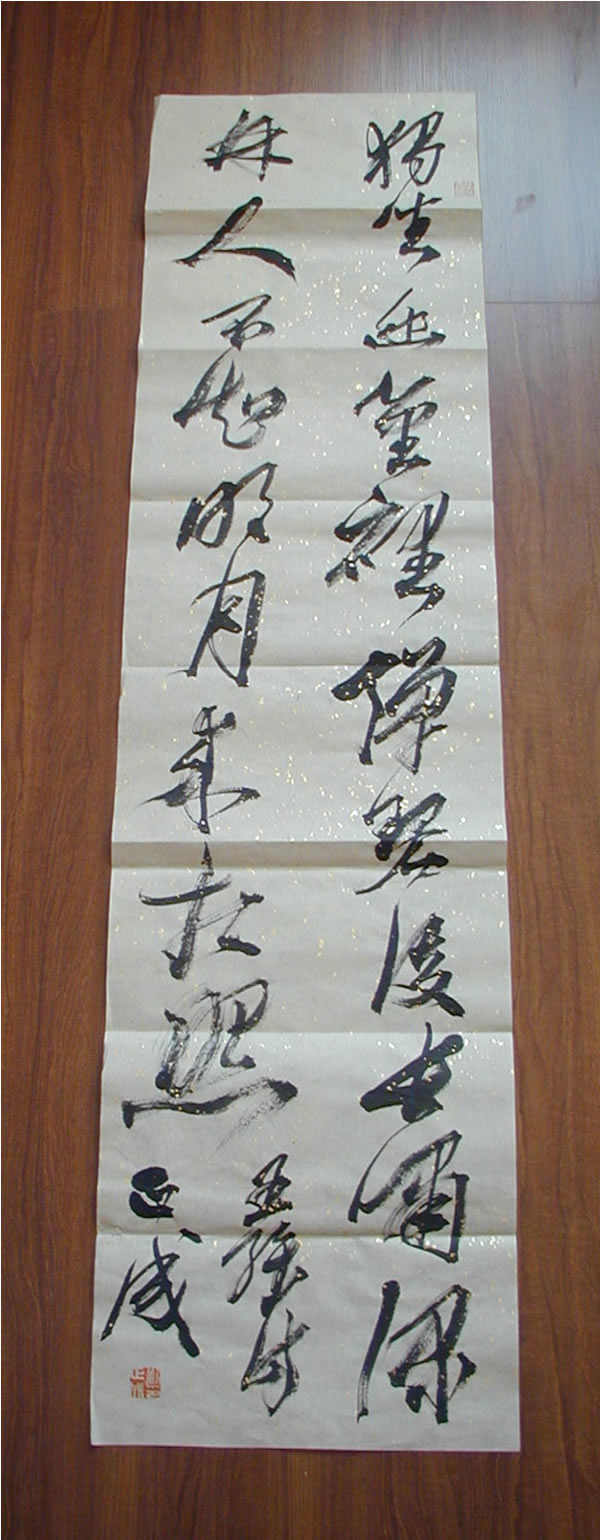 獨坐幽篁裡彈琴復長嘯深
林人不知明月來相照
王維詩
正成